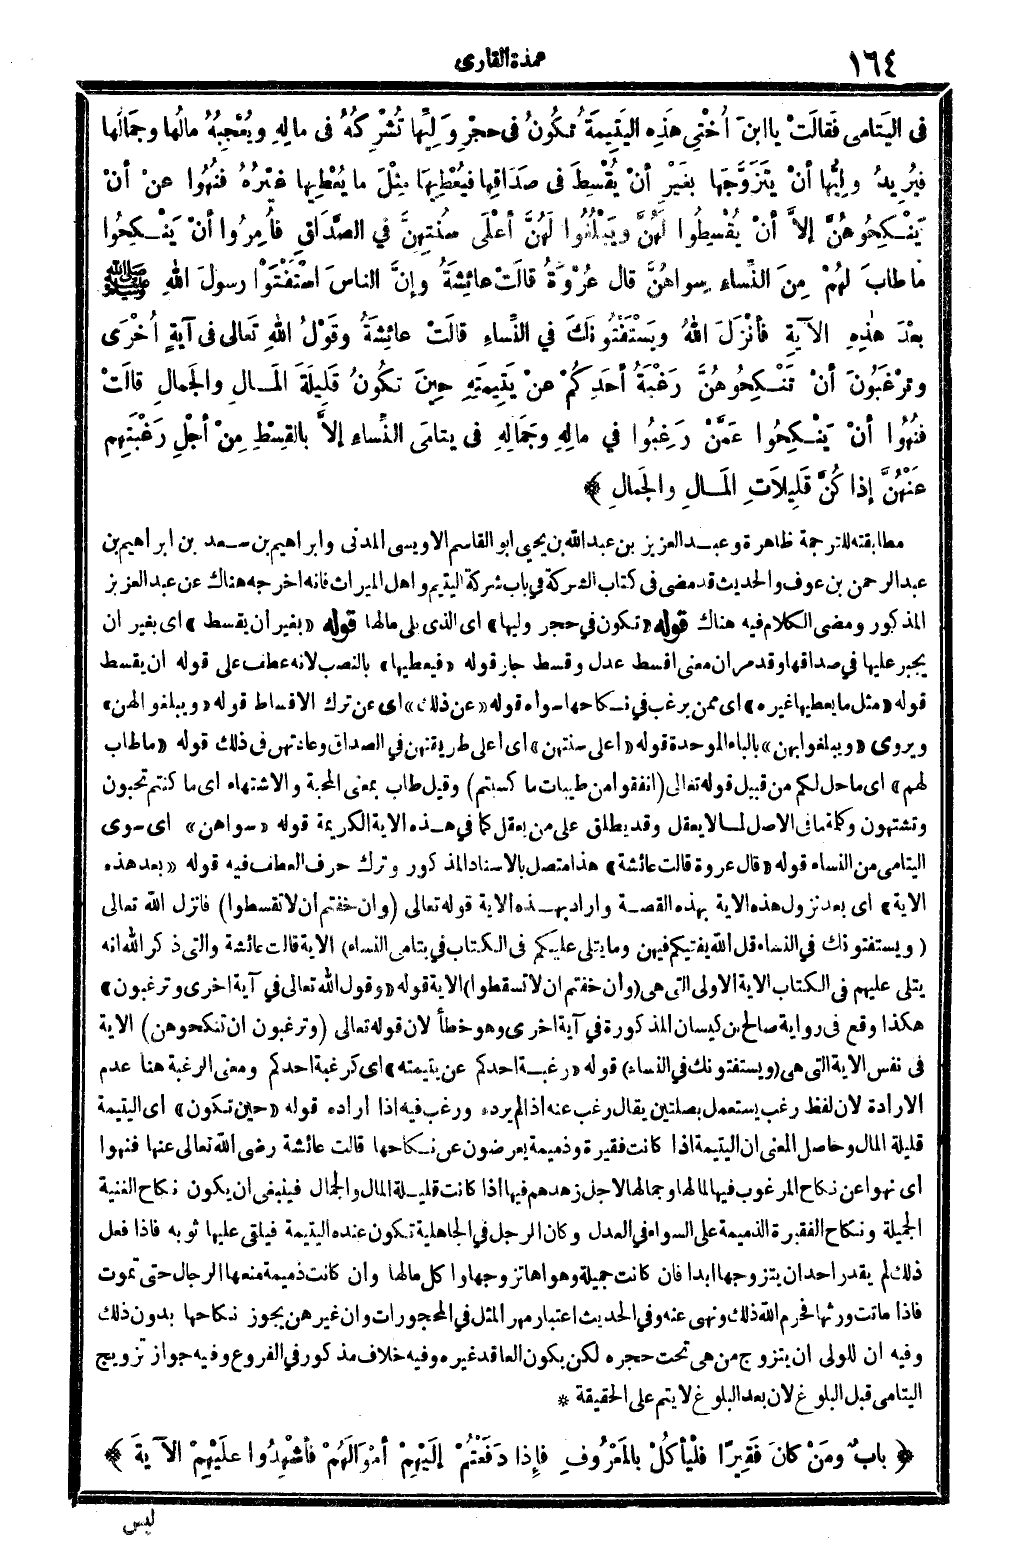 ١٦٤
عمدة القارى
فى اليَتامى فَقالَتْ يا ابنَ أُخْتِى هَذِهِ اليَتِيمَةُ تَكُونُ فى حجْرِ وَلِيِّها تُشْرِكُهُ فى مالِهِ ويُعْجِبُهُ مالُها وجَمَالُها
فيُرِيدُ ولِيُّها أنْ يَتَزَوَّجَها بغَيْرِ أنْ يُقْسِطَ فى صَدَاقِها فيُعْطِيهَا مِثْلَ ما يُعْطِيها غيْرُهُ فنُهُوا عنْ أنْ
يَنْـكِحُوهُنَّ إلاَّ أنْ يُقْسِطُوا لَهُنَّ ويَبْلُغُوا لَهُنَّ أعْلَى سُنَّتِهِنَّ فِي الصَّدَاقِ فأُمِرُوا أنْ يَنْـكِحُوا
ما طابَ لَهُمْ مِنَ النِّساءِ سِواهُنَّ قال عُرْوَةُ قالَتْ عائِشَةُ وإنَّ الناسَ اسْتَفْتَوْا رسولَ اللهِ ﷺ
بعْدَ هٰذِهِ الآيةِ فأنْزَلَ اللهُ ويَسْتَفْتُونَكَ فِي النِّساءِ قالَتْ عائِشَةُ وقَوْلُ اللهِ تَعالى فى آيةٍ أُخْرَى
وترْغَبُونَ أنْ تَنْـكِحُوهُنَّ رَغْبَةُ أحَدِكُمْ عنْ يَتِيمَتِهِ حِينَ تَكُونُ قَلِيلَةَ المَـالِ والجَمالِ قالَتْ
فنُهُوا أنْ يَنْـكِحُوا عَمَّنْ رَغِبُوا فِي مالِهِ وجَمَالِهِ فى يتامَى النِّساءِ إلاَّ بالقِسْطِ مِنْ أجْلِ رَغْبَتِهِمِ
عَنْهُنَّ إذا كُنَّ قَلِيلاَتِ المَـالِ والجَمالِ ﴾
مطابقته للترجمة ظاهرة وعبـد العزيز بن عبدالله بن يحيى ابو القاسم الاويسى المدنى وابراهيم بن سـعد بن ابراهيم بن
عبدالرحمن بن عوف والحديث قد مضى فى كتاب الشركة في باب شركة اليتيم واهل الميراث فانه اخرجه هناك عن عبدالعزيز
المذكور ومضى الكلام فيه هناك قوله «تكون في حجر وليها» اى الذى يلى مالها قوله «بغير ان يقسط» اى بغير ان
يجبر عليها في صداقها وقد مر ان معنى اقسط عدل وقسط جار قوله «فيعطيها» بالنصب لانه عطف على قوله ان يقسط
قوله «مثل ما يعطيها غيره» اى ممن يرغب في نـكاحها سواه قوله «عن ذلك» اى عن ترك الاقساط قوله «ويبلغوا لهن»
ويروى «ويبلغوا بهن» بالباء الموحدة قوله «اعلى سنتهن» اى اعلى طريقتهن في الصداق وعادتهن فى ذلك قوله «ما طاب
لهم» اى ما حل لكم من قبيل قوله تعالى (انفقوا من طيبات ما كسبتم) وقيل طاب بمعنى المحبة والاشتهاء اى ما كنتم تحبون
وتشتهون وكلمة ما فى الاصل لمـا لا يعقل وقد يطلق على من يعقل كما في هـذه الاية الكريمة قوله «سواهن» اى سوى
اليتامى من النساء قوله «قال عروة قالت عائشة» هذا متصل بالاسناد المذكور وترك حرف العطف فيه قوله «بعد هذه
الاية» اى بعد نزول هذه الاية بهذه القصـة واراد بهـذه الاية قوله تعالى (وان خفتم أن لا تقسطوا) فانزل الله تعالى
(ويستفتونك في النساء قل الله يفتيكم فيهن وما يتلى عليكم فى الـكتاب في يتامى النساء) الاية قالت عائشة والتى ذكر الله انه
يتلى عليهم فى الـكتاب الاية الاولى التى هى (وأن خفتم ان لا تسقطوا) الاية قوله «وقول الله تعالى في آية اخرى وترغبون»
هكذا وقع فى رواية صالح بن كيسان المذكورة في آية اخرى وهو خطأ لان قوله تعالى (وترغبون ان تنكحوهن) الاية
فى نفس الاية التى هى (ويستفتونك في النساء) قوله «رغبـة احدكم عن يتيمته» اى كرغبة احدكم ومعنى الرغبة هنا عدم
الارادة لان لفظ رغب يستعمل بصلتين يقال رغب عنه اذا لم يرده ورغب فيه اذا اراده قوله «حين تـكون» اى اليتيمة
قليلة المال وحاصل المعنى ان اليتيمة اذا كانت فقيرة وذميمة يعرضون عن نـكاحها قالت عائشة رضى الله تعالى عنها فنهوا
اى نهوا عن نكاح المرغوب فيها لمالها وجمالها لاجل زهدهم فيها اذا كانت قليـلة المال والجمال فينبغى ان يكون نكاح الغنية
الجميلة ونكاح الفقيرة الذميمة على السواء في العدل وكان الرجل في الجاهلية تـكون عنده اليتيمة فيلقى عليها ثوبه فاذا فعل
ذلك لم يقدر احد ان يتزوجها ابدا فان كانت جميلة وهواها تزوجها واكل مالها وان كانت ذميمة منعها الرجال حتى تموت
فاذا ماتت ورثها فحرم الله ذلك ونهى عنه وفي الحديث اعتبار مهر المثل في المحجورات وان غيرهن يجوز نـكاحها بدون ذلك
وفيه ان للولى ان يتزوج من هى تحت حجره لكن يكون العاقد غيره وفيه خلاف مذكور في الفروع وفيه جواز تزويج
اليتامى قبل البلوغ لان بعد البلوغ لا يتم على الحقيقة *
﴿ بابٌ ومَنْ كانَ فَقِيرًا فلْيأكُلْ بالمَعْرُوفِ فإذا دَفَعْتُمْ إلَيْهِمْ أمْوَالَهُمْ فأشْهِدُوا علَيْهِمْ الآيةَ ﴾
ليس